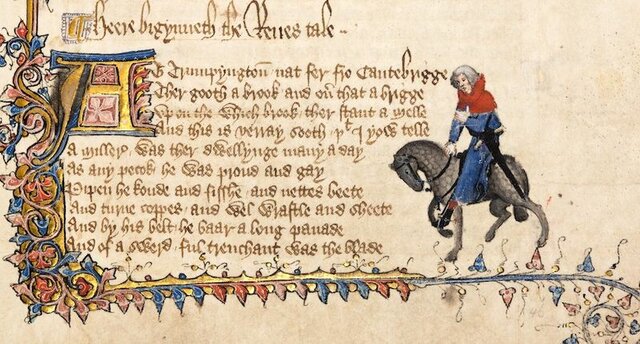 Heere bigynneth the Reues tale
At Trumpyngtoun nat fer fro Cantebrigge
Ther gooth a brook and ouer that a brigge
Vpon the which brook ther stant a Melle
And this is verray sooth þt I yow telle
A Millere was ther dwellynge many a day
As any pecok he was proud and gay
Pipen he koude and fisshe and nettes beete
And turne coppes and wel wrastle and sheete
And by his belt he baar a long panade
And of a swerd ful trenchant was the blade